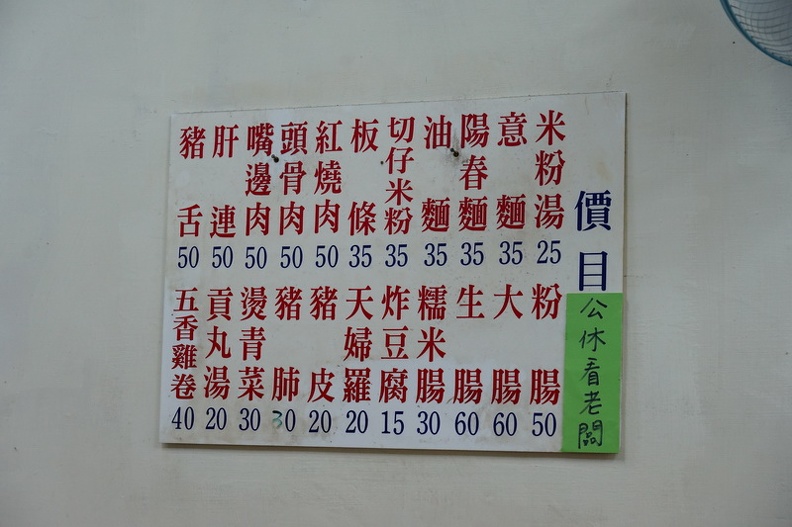 價目
米粉湯 25
意麵 35
陽春麵 35
油麵 35
切仔米粉 35
板條 35
紅燒肉 50
頭骨肉 50
嘴邊肉 50
肝連 50
豬舌 50
粉腸 50
大腸 60
生腸 60
糯米腸 30
炸豆腐 15
天婦羅 20
豬皮 20
豬肺 30
燙青菜 30
貢丸湯 20
五香雞卷 40
公休看老闆